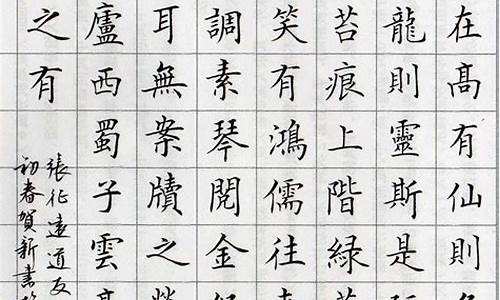 在髙有仙則
龍則靈斯是
苔痕上階緑
笑有鴻儒往
調素琴閱金
耳無案牘之
廬西蜀子雲
之有
張遠道友
初春賀新書